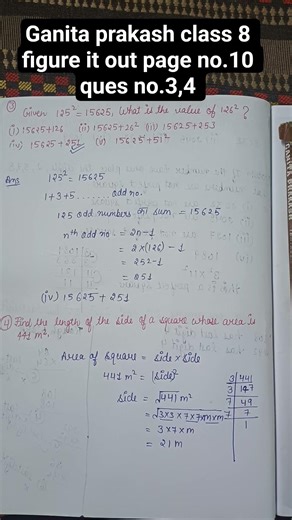 Ganita prakash class 8
figure it out page no.10
ques no.3,4
③ Given 125² = 15625, What is the value of 126² ?
(i) 15625+126 (ii) 15625+26² (iii) 15625+253
(iv) 15625+251 (v) 15625+51²
Ans 125² = 15625
1+3+5..... odd no.
125 odd numbers of sum = 15625
nth odd no = 2n-1
= 2×(126)-1
= 252-1
= 251
(iv) 15625 + 251
④ Find the length of the side of a square whose area is
441 m².
Area of square = side × side
441 m² = (side)²
side = √441 m²
= √3×3×7×7×m×m
= 3×7×m
= 21 m
3 441
3 147
7 49
7 7
1